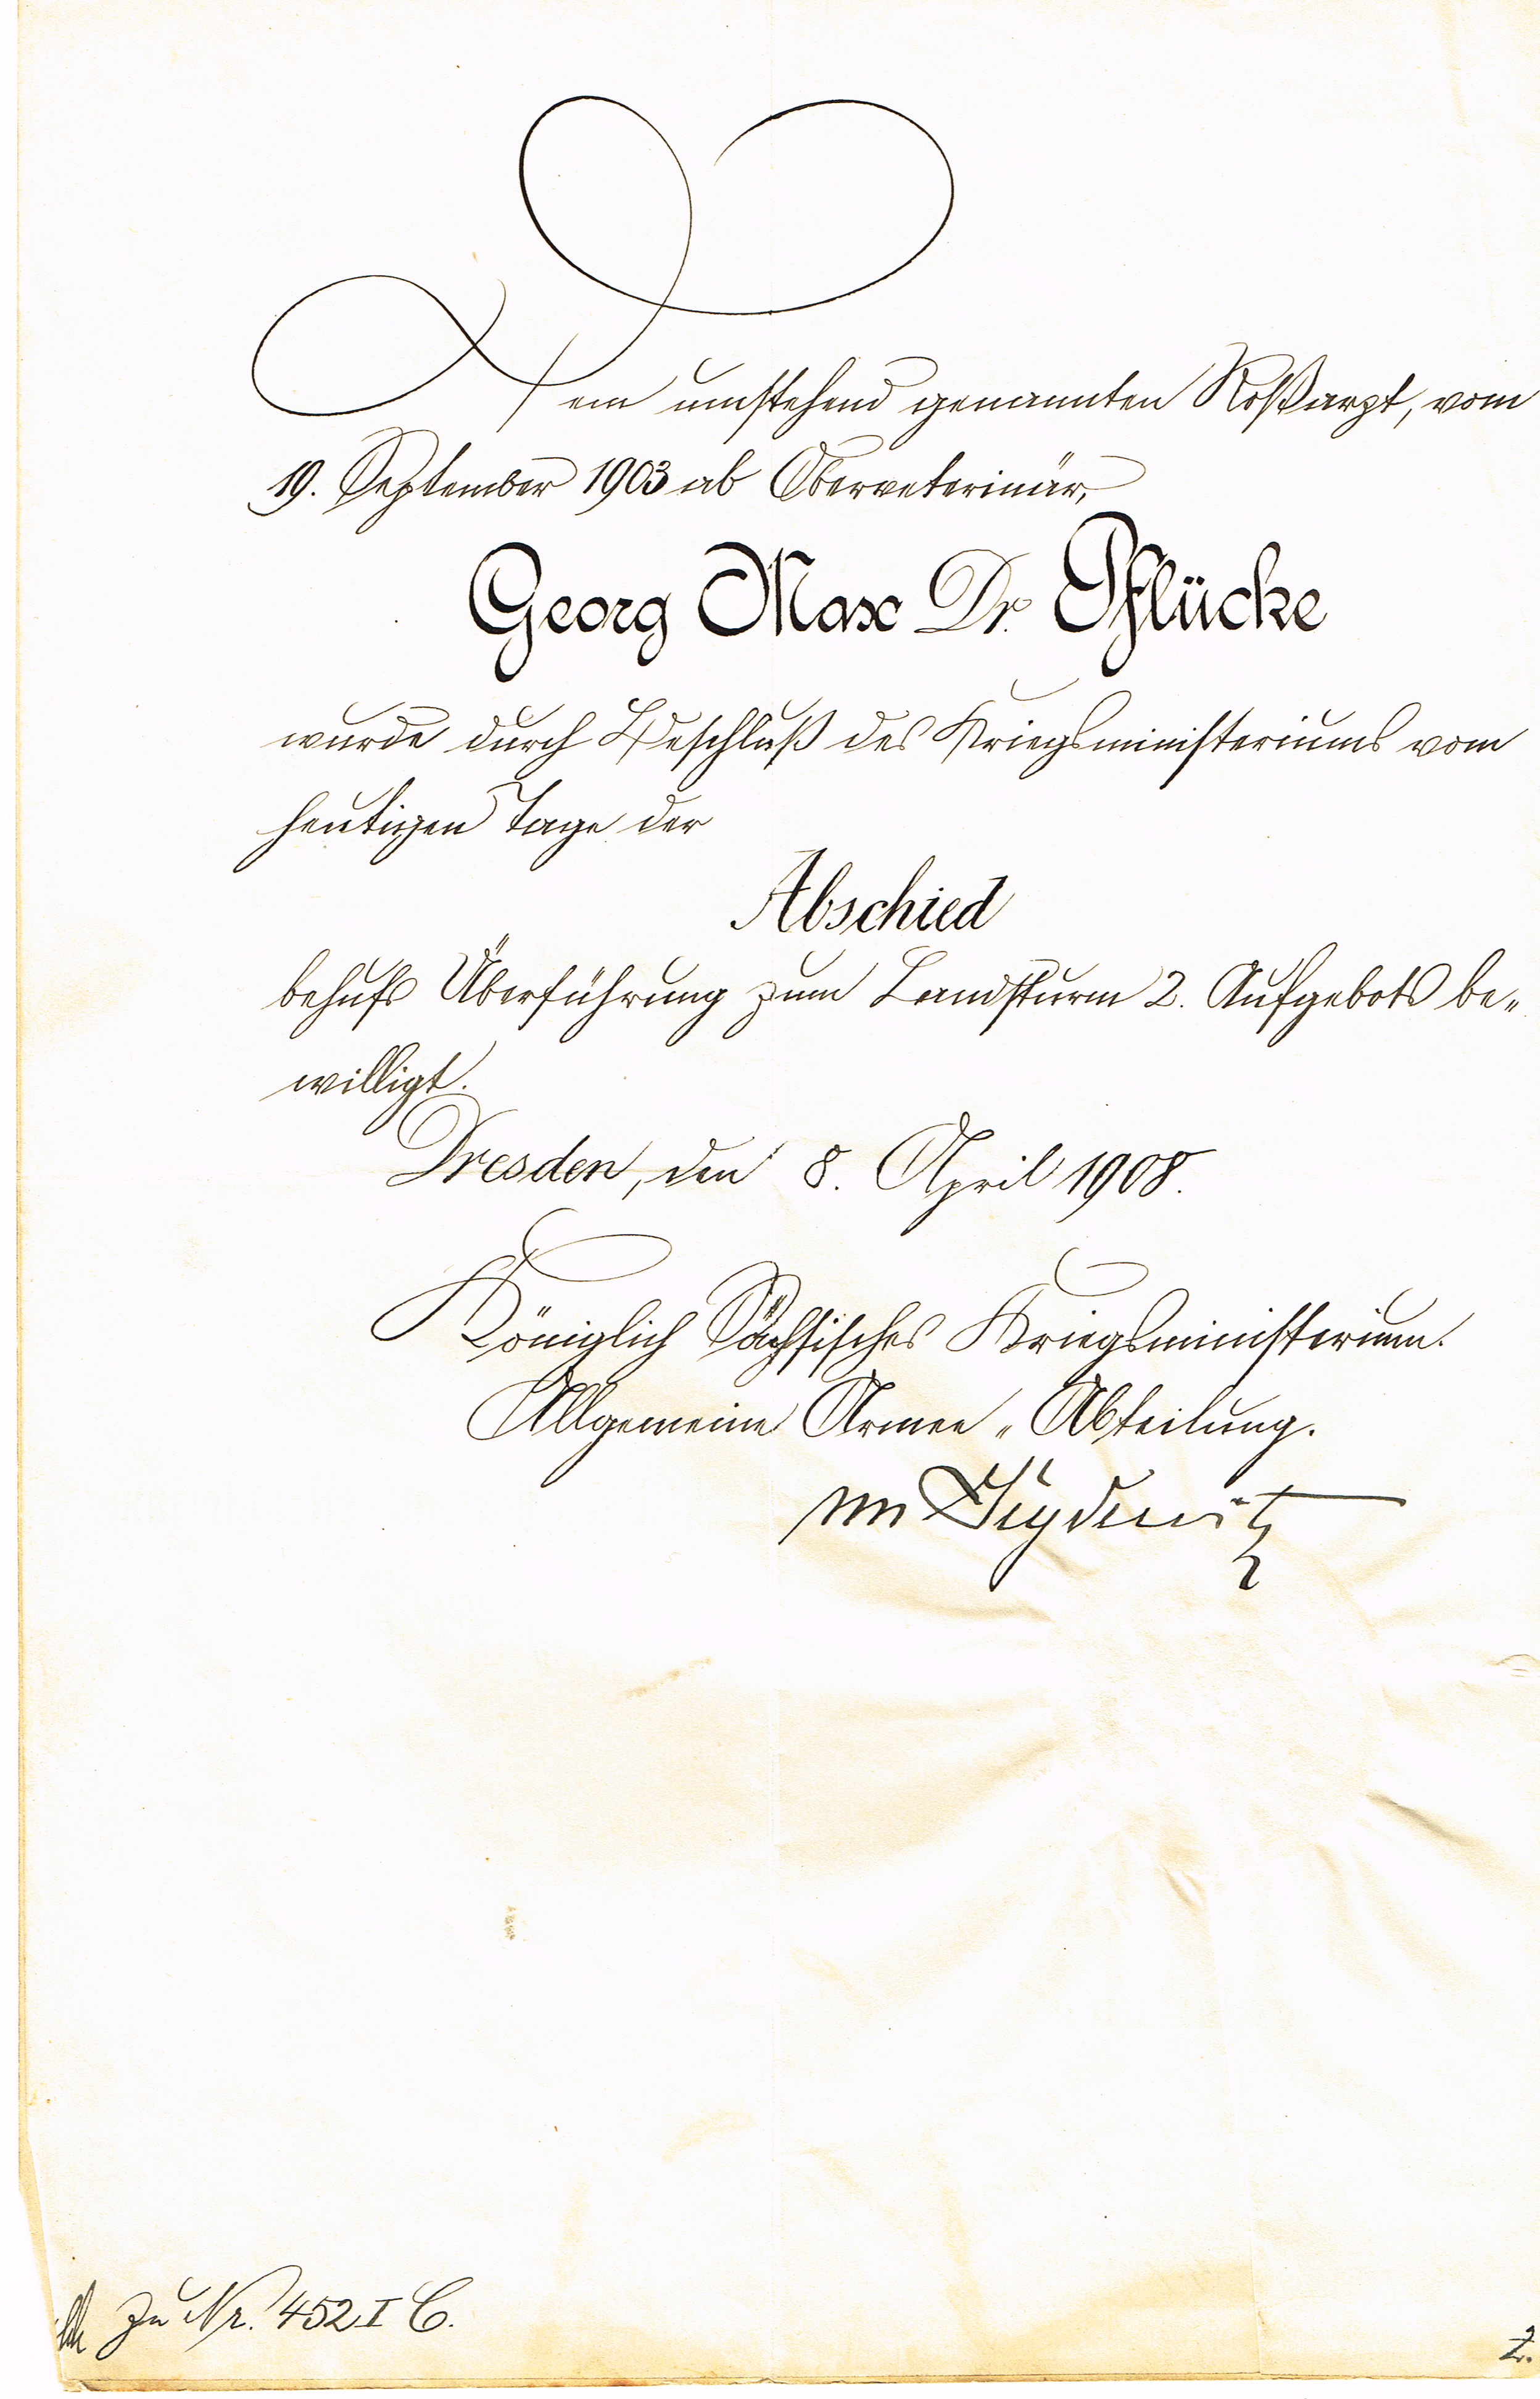 Dem umstehend genannten Roßarzt, vom
19. September 1903 ab Oberveterinär,
Georg Max Dr. Pflücke
wurde durch Beschluß des Kriegsministeriums vom
heutigen Tage der
Abschied
behufs Überführung zum Landsturm 2. Aufgebots be„
willigt.
Dresden, den 8. April 1908.
Königlich Sächsisches Kriegsministerium.
Allgemeine Armee„Abteilung.
Zu Nr. 452 I C.
2.